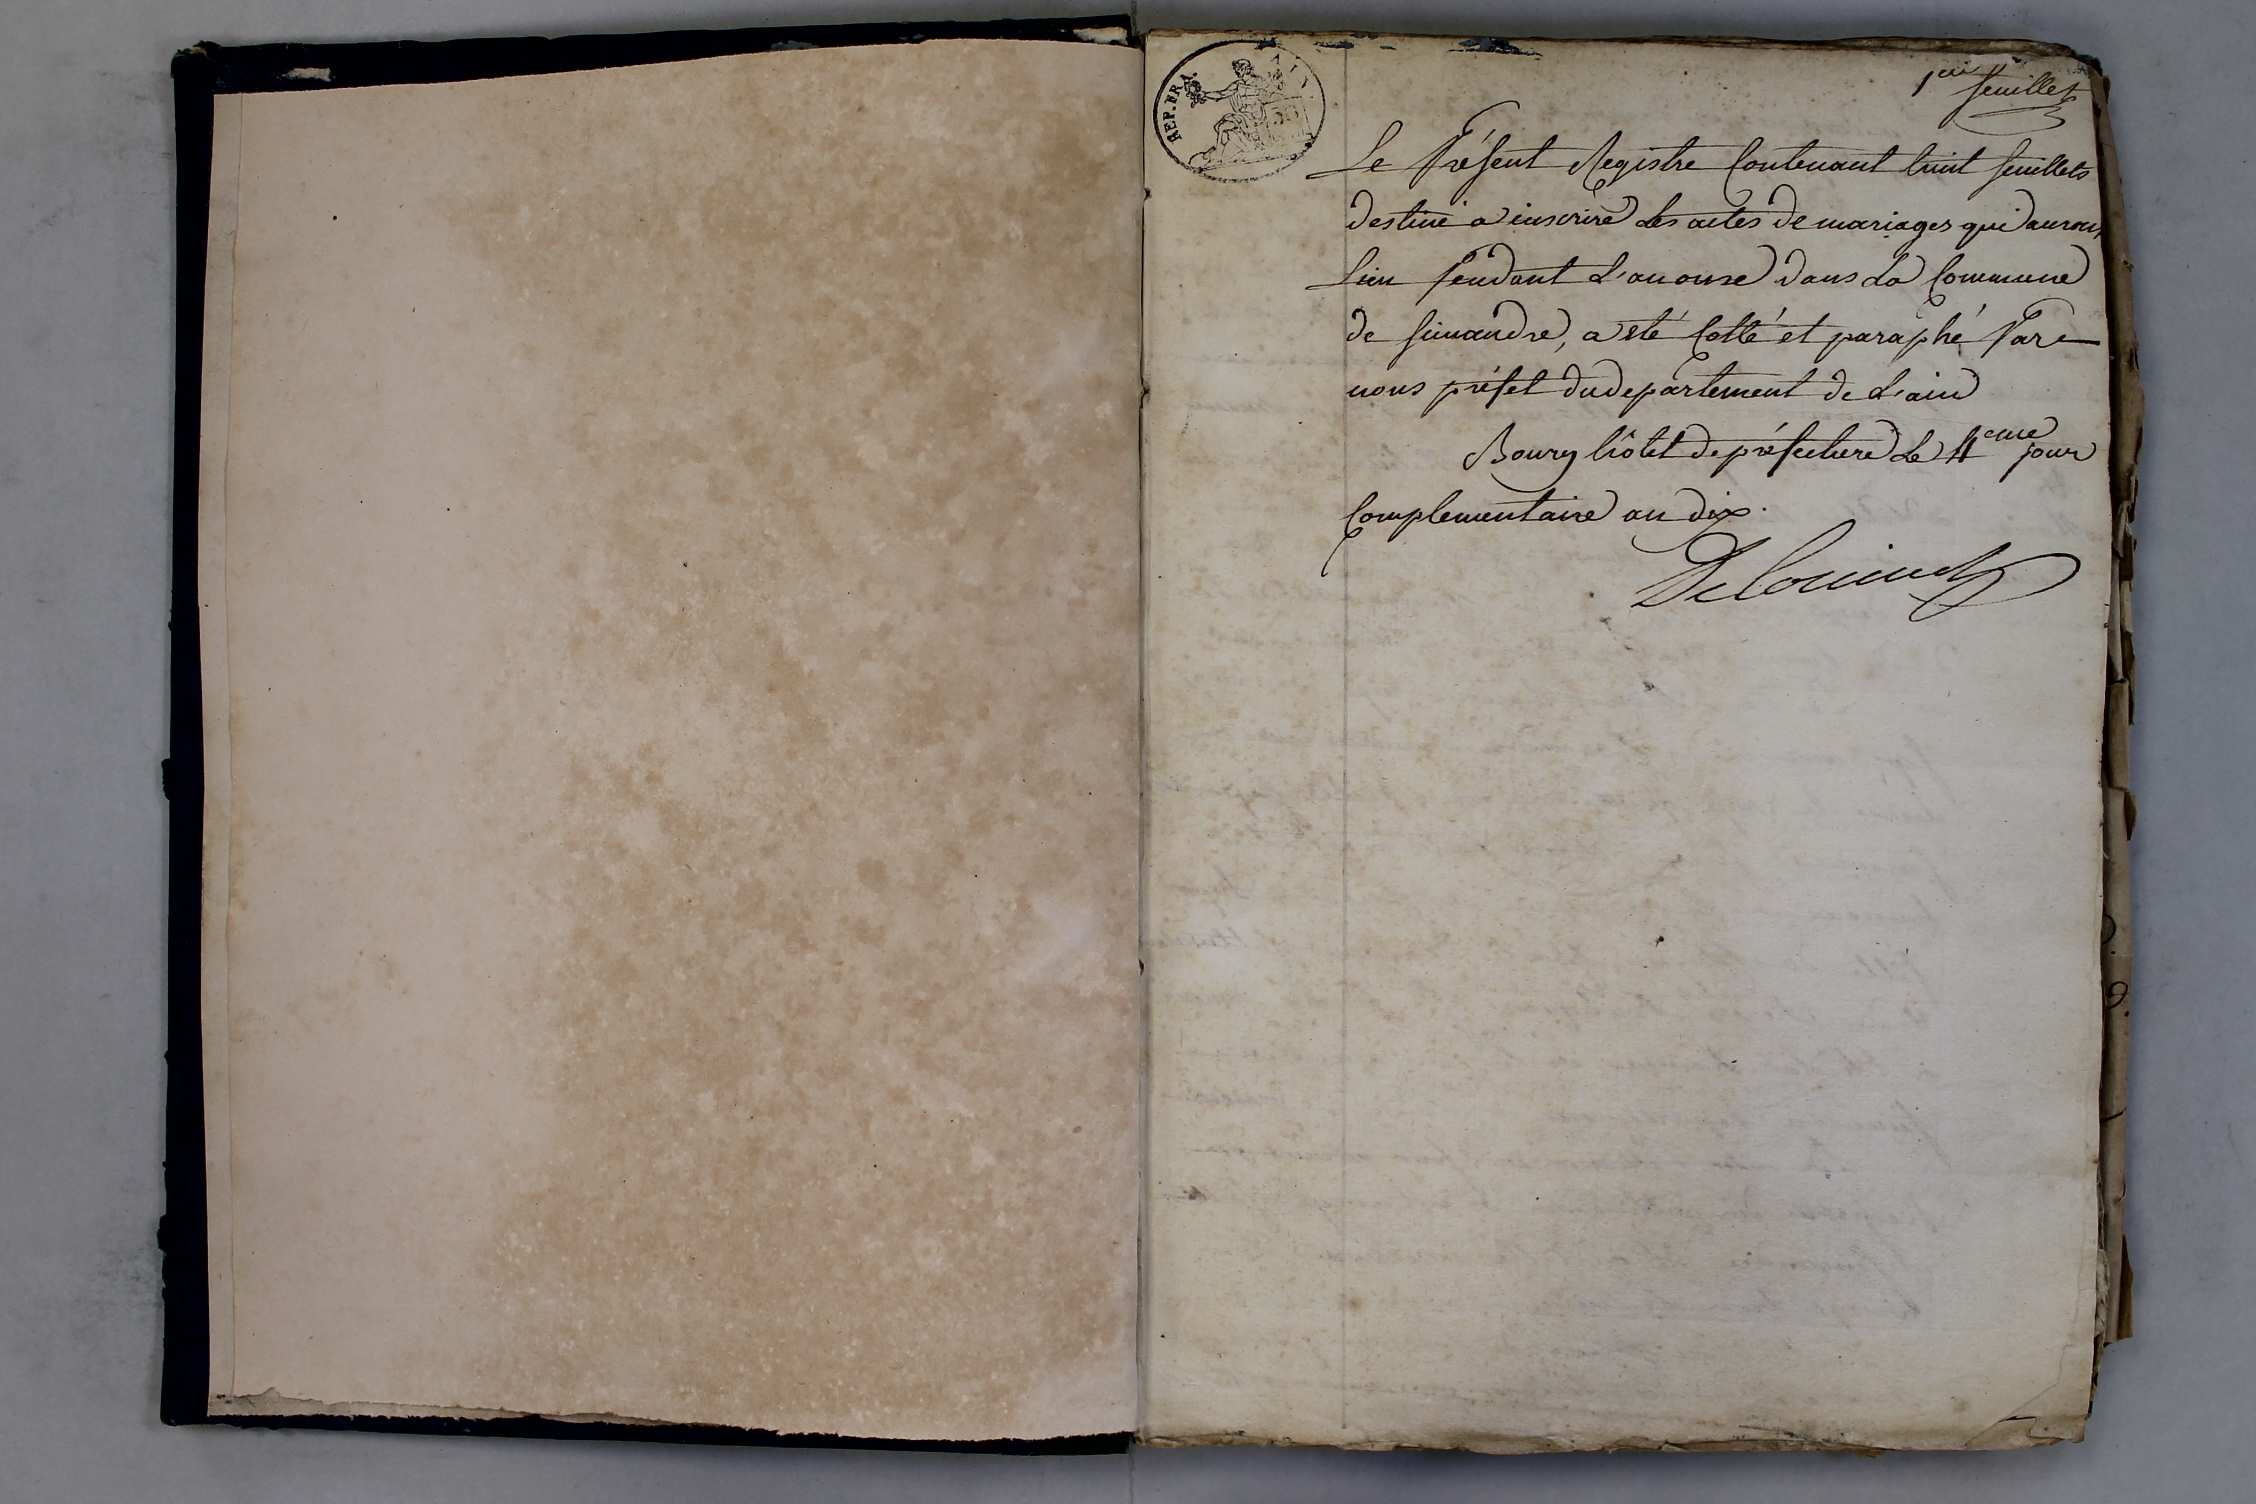 REP. FRA. AIN
1er feuillet
Le Présent Registre Contenant huit feuillets
destiné a inscrire les actes de mariages qui auront
lieu Pendant L'an onze dans La Commune
de simandre, a eté Cotté et paraphé Par
nous préfet du departement de L'ain
Bourg hôtel de préfecture Le 4eme jour
Complementaire an dix.